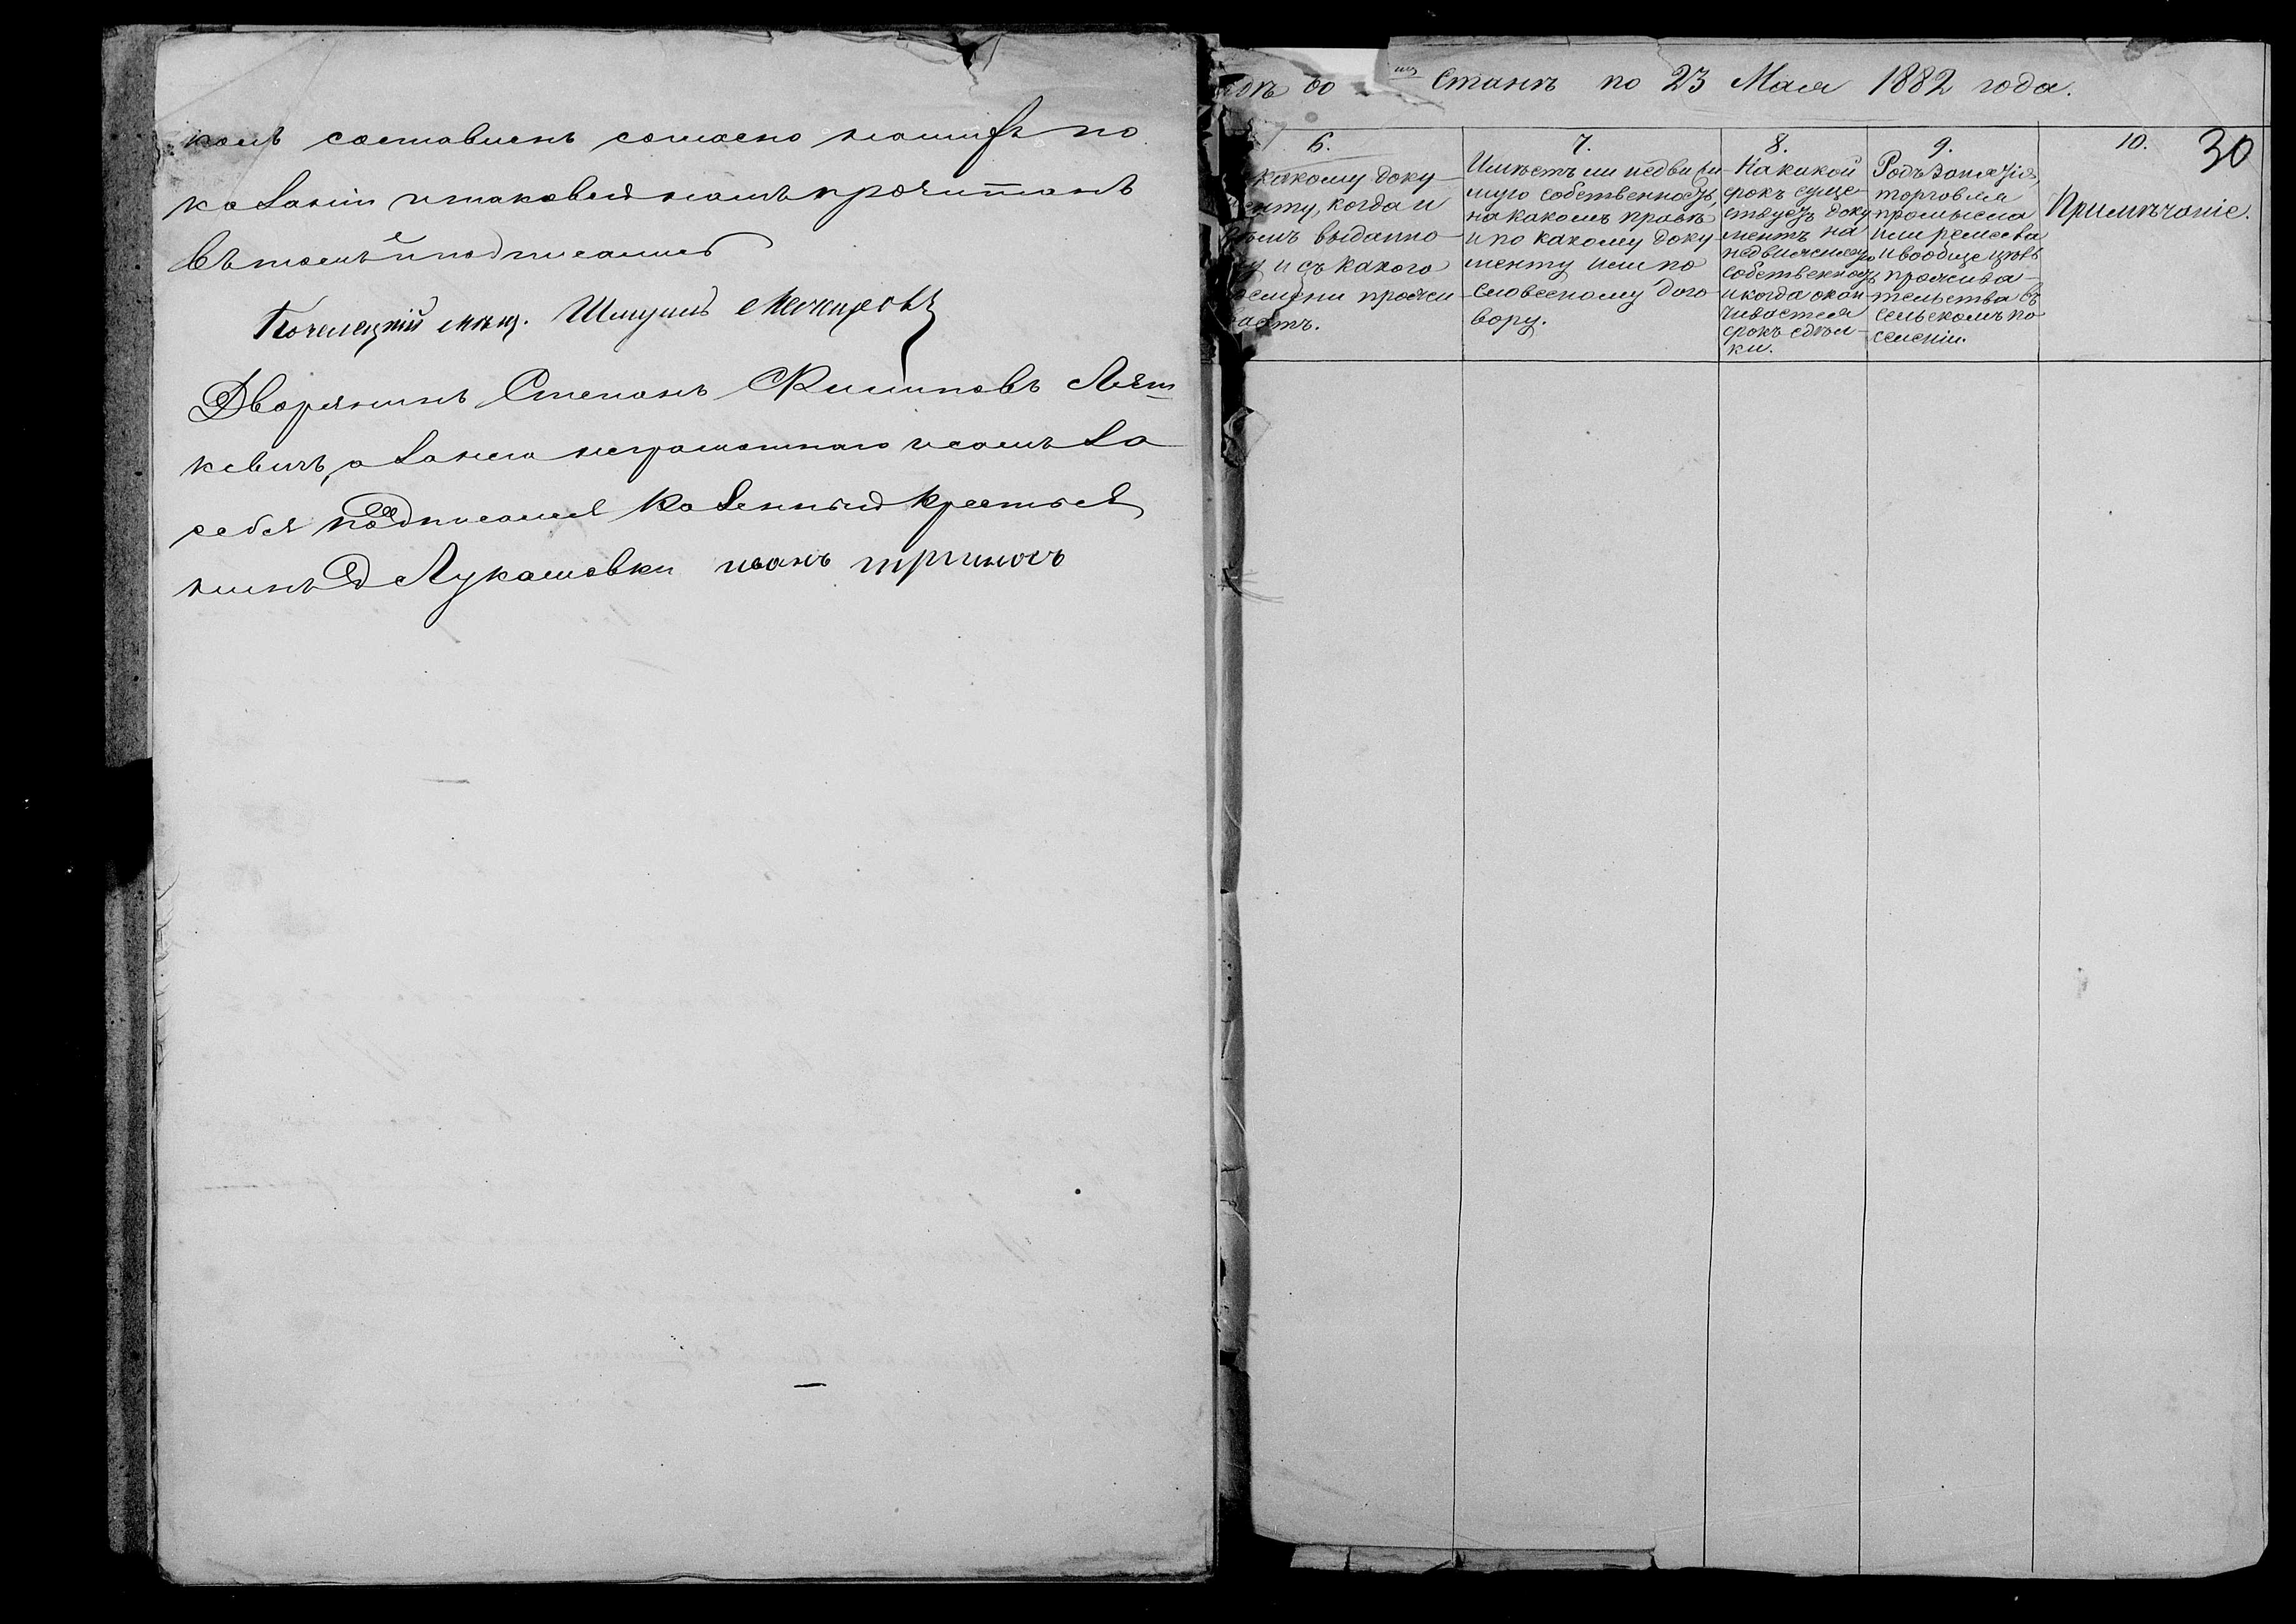 колъ составленъ согласно нашихъ по
казаніи и таковый намъ прочитанъ
въ томъ и подписались
Почепецкій мѣщ. Шмуилъ
Дворянинъ Степанъ Филиповъ Ляш
кевичъ, а за него неграмотнаго и самъ за
себя подписался Казенный Крестья
нинъ д Лукашовки иванъ
30
одѣ во Станѣ по 23 Мая 1882 года.
6.
какому доку
менту, когда и
кѣмъ выданно
у и съ какого
времени прожи
ваетъ.
7.
Имѣетъ ли недвижи
мую собственность,
на какомъ правѣ
и по какому доку
менту или по
словесному дого
вору.
8.
На какой
срокъ суще
ствуетъ доку
ментъ на
недвижимую
собственность
и когда окан
чивается
срокъ сдѣл
ки.
9.
Родъ занятія,
торговля
промысла
или ремесла
и вообще цѣль
прожива
тельства въ
сельскомъ по
селеніи.
10.
Примѣчаніе.